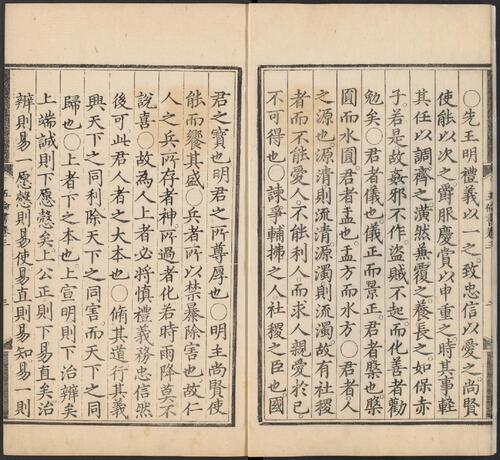 ○先王明禮義以一之致忠信以愛之尚賢
使能以次之爵服慶賞以申重之時其事輕
其任以調齊之潢然兼覆之養長之如保赤
子若是故姦邪不作盜賊不起而化善者勸
勉矣○君者儀也儀正而景正君者槃也槃
圓而水圓君者盂也盂方而水方○君者人
之源也源清則流清源濁則流濁故有社稷
者而不能愛人不能利人而求人親愛於已
不可得也○諫爭輔拂之人社稷之臣也國
君之寶也明君之所尊厚也○明主尚賢使
能而饗其盛○兵者所以禁暴除害也故仁
人之兵所存者神所過者化若時雨降莫不
說喜○故為人上者必將慎禮義務忠信然
後可此君人者之大本也○脩其道行其義
興天下之同利除天下之同害而天下之同
歸也○上者下之本也上宣明則下治辨矣
上端誠則下愿愨矣上公正則下易直矣治
辨則易一愿愨則易使易直則易知易一則